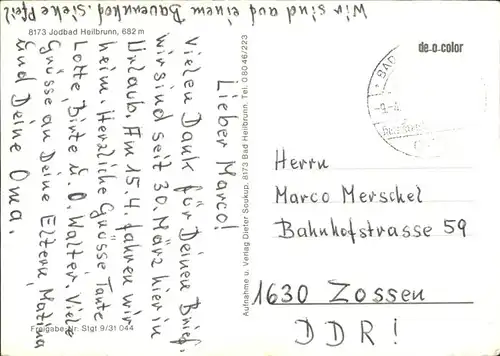 Wir sind auf einem Bauernhof. Siehe Pfeil
8173 Jodbad Heilbrunn, 682 m
Lieber Marco!
Vielen Dank für Deinen Brief.
Wir sind seit 30. März hier in
Urlaub. Am 15.4. fahren wir
heim. Herzliche Grüsse Tante
Lotte, Birte u. O. Walter. Viele
Grüsse an Deine Eltern, Matina
und Deine Oma.
Freigabe Nr. Stgt 9/31 044
Aufnahme u. Verlag Dieter Soukup, 8173 Bad Heilbrunn, Tel. 0 80 46/223
de-o-color
BAD
Herrn
Marco Merschel
Bahnhofstrasse 59
1630 Zossen
DDR!